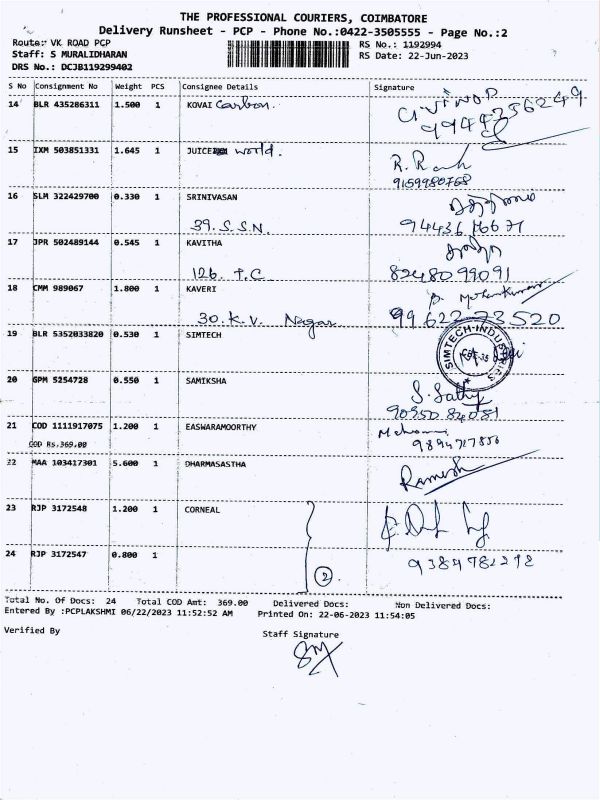 THE PROFESSIONAL COURIERS, COIMBATORE
Delivery Runsheet - PCP - Phone No.:0422-3505555 - Page No.:2
Route:- VK ROAD PCP RS No.: 1192994
Staff: S MURALIDHARAN RS Date: 22-Jun-2023
DRS No.: DCJB119299402
S No Consignment No Weight PCS Consignee Details Signature
14 BLR 435286311 1.500 1 KOVAI Carbon.
15 IXM 503851331 1.645 1 JUICE world.
9159980768
16 SLM 322429700 0.330 1 SRINIVASAN
39. S.S.N.
17 JPR 502489144 0.545 1 KAVITHA
126. T.C 8248099091
18 CMM 989067 1.800 1 KAVERI
30. K.V. Nagar 99 622 73520
19 BLR 5352033820 0.530 1 SIMTECH SIMTECH-INDUSTRIES
20 GPM 5254728 0.550 1 SAMIKSHA
21 COD 1111917075 1.200 1 EASWARAMOORTHY
COD Rs.369.00
22 MAA 103417301 5.600 1 DHARMASASTHA Ramesh
23 RJP 3172548 1.200 1 CORNEAL
24 RJP 3172547 0.800 1
2
Total No. Of Docs: 24 Total COD Amt: 369.00 Delivered Docs: Non Delivered Docs:
Entered By :PCPLAKSHMI 06/22/2023 11:52:52 AM Printed On: 22-06-2023 11:54:05
Verified By Staff Signature